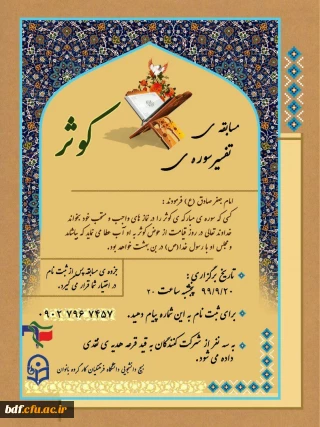 مسابقه ی
تفسیر سوره ی
کوثر
امام جعفر صادق (ع) فرمودند :
کسی که سوره ی مبارکه ی کوثر را در نماز های واجب و مستحب خود بخواند
خداوند تعالی در روز قیامت از حوض کوثر به او آب عطا می نماید که بیاشامد
و مجلس او با رسول خدا(ص) در بهشت خواهد بود.
تاریخ برگزاری :
۹۹/۹/۲۰ پنجشنبه ساعت ۲۰
جزوه ی مسابقه پس از ثبت نام
در اختیار شما قرار می گیرد.
برای ثبت نام به این شماره پیام دهید:
۰۹۰۲ ۷۹۶ ۷۴۵۷
به سه نفر از شرکت کنندگان به قید قرعه هدیه ی نقدی
داده می شود.
بسیج دانشجویی دانشگاه فرهنگیان کار گروه بانوان
bdf.cfu.ac.ir